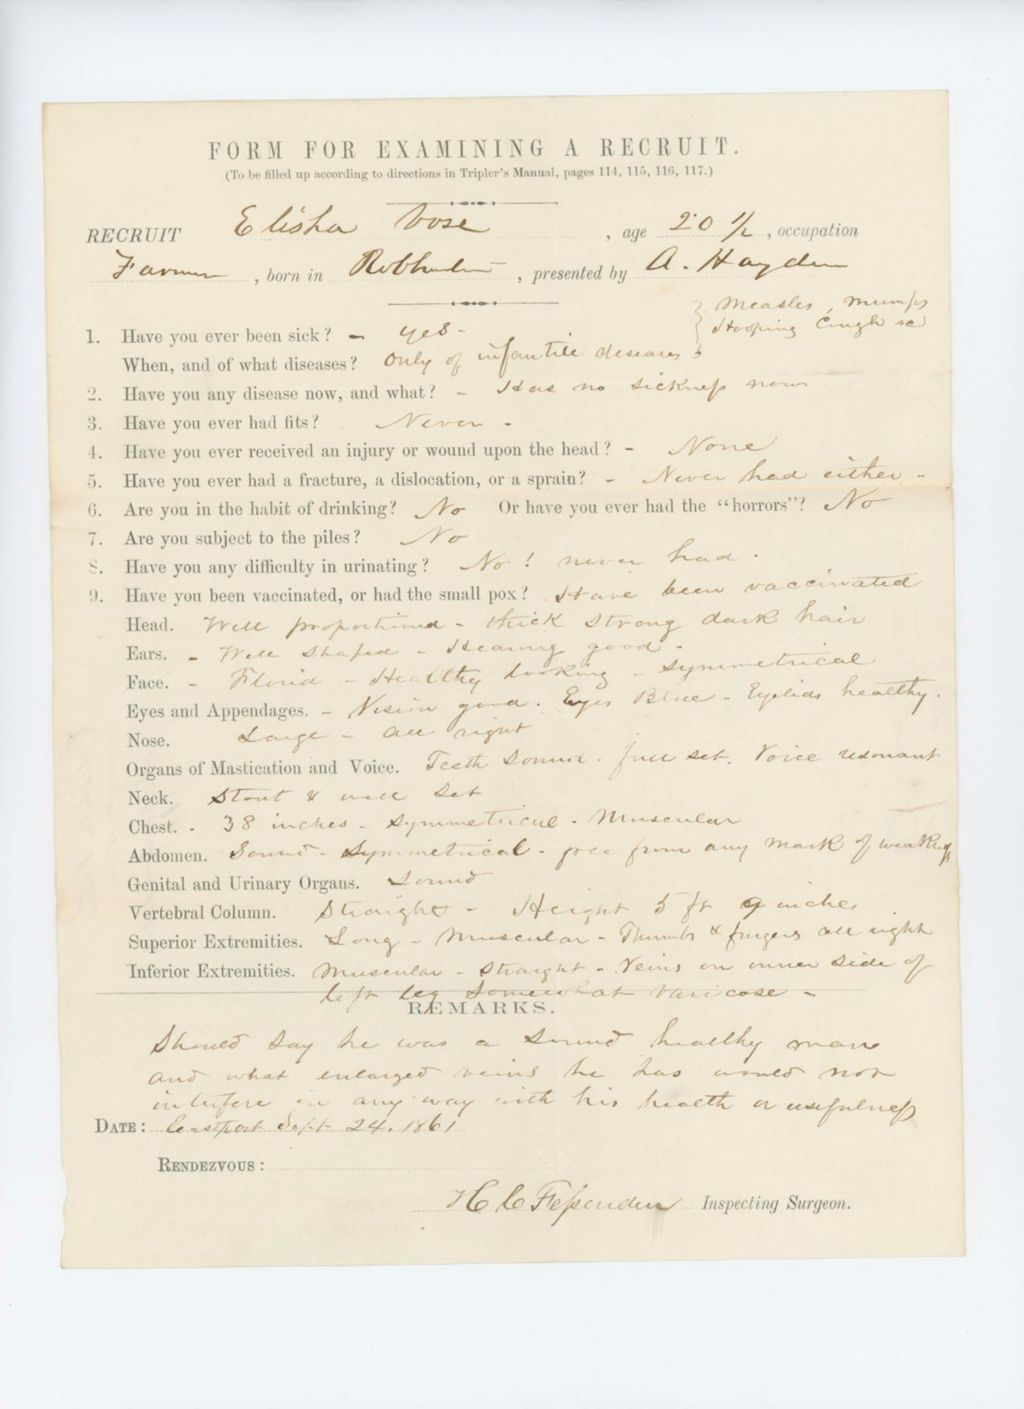 FORM FOR EXAMINING A RECRUIT.
(To be filled up according to directions in Tripler's Manual, pages 114, 115, 116, 117.)
RECRUIT Elisha Vose, age 20 1/2, occupation
Farmer, born in Robbinston, presented by A. Hayden
1. Have you ever been sick? – yes – { Measles, Mumps
When, and of what diseases? Only of infantile deseases { Hooping Cough &c
2. Have you any disease now, and what? – Has no sickness now
3. Have you ever had fits? Never –
4. Have you ever received an injury or wound upon the head? – None
5. Have you ever had a fracture, a dislocation, or a sprain? – Never had either –
6. Are you in the habit of drinking? No Or have you ever had the "horrors"? No
7. Are you subject to the piles? No
8. Have you any difficulty in urinating? No! never had.
9. Have you been vaccinated, or had the small pox? Have been vaccinated
Head. Well proportioned – thick strong dark hair
Ears. – Well shaped – Hearing good –
Face. – Florid – Healthy looking – symmetrical
Eyes and Appendages. – Vision good. Eyes Blue – Eyelids healthy.
Nose. Large – all right
Organs of Mastication and Voice. Teeth Sound – full set. Voice resonant
Neck. Stout & well set
Chest. – 38 inches – Symmetrical – Muscular
Abdomen. Sound – Symmetrical – free from any mark of weakness
Genital and Urinary Organs. Sound
Vertebral Column. Straight – Height 5 ft 9 inches
Superior Extremities. Long – Muscular – Thumbs & fingers all right
Inferior Extremities. Muscular – Straight – Veins on inner side of
left leg somewhat varicose –
REMARKS.
Should say he was a sound healthy man
and what enlarged veins he has would not
interfere in any way with his health or usefulness
DATE: Eastport Sept 24. 1861
RENDEZVOUS:
H C Fessenden Inspecting Surgeon.